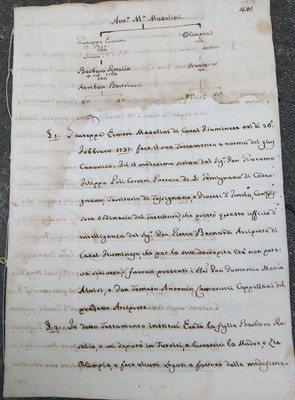 Ant.º M.ª Masolini
Giuseppe Ermete Olimpia
Barbara Rosalia
Annibale Bertolucci
§. 1. Giuseppe Ermete Masolini di Casal Fiuminese nel dì 20
Febbraro 1737. fece il suo Testamento a norma del gius
Canonico. Fu il medesimo scritto dal Sig.r Don Giacomo
Filippo Poli Ceroni Paroco di S. Gemignano di
Territorio di Fossignano, e Diocesi d' Imola,
sore ordinario del Testatore che prestò questo ufficio d'
intelligenza del Sig.r Don Pietro Bernardi Arciprete di
Casal Fiuminese che per la sua età non pote-
va scrivere; furono presenti i Don Domenico Maria
Aloisi, e Don Tomaso Antonio Cappellani del
predetto Arciprete.
§. 2. In detto Testamento instituì Erede la figlia Barbara Ro-
salia, a cui deputò in Tutrici, e Curatrici la Madre e Zia
Olimpia, e fece alcuni Legati a favore delle medesime